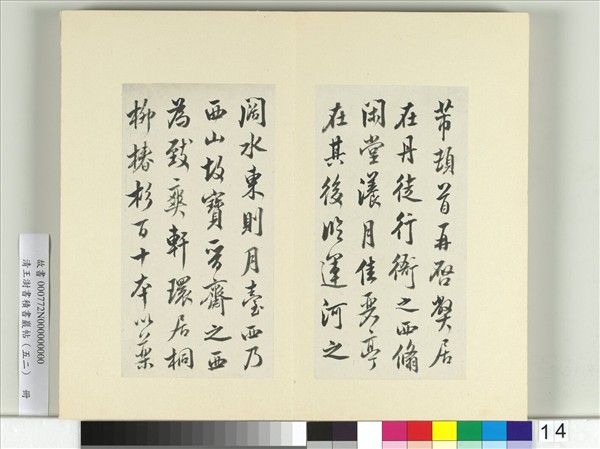 芾頓首再啓弊居
在丹徒行衙之西翛
閑堂漾月佳麗亭
在其後臨運河之
闊水東則月臺西乃
西山故寶晉齋之西
為致爽軒環居桐
柳椿杉百十本以藥
故書000772N000000000
清王澍書積書巖帖（五二） 冊
14